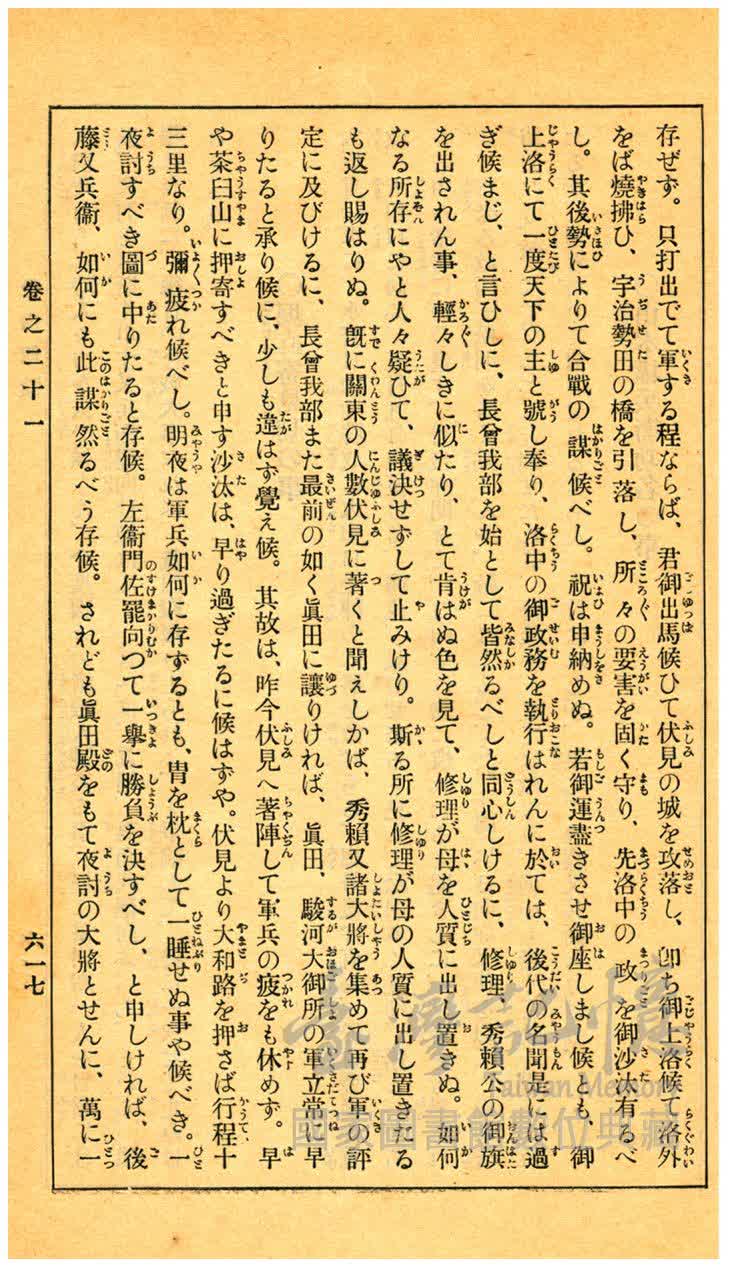 存ぜず。只打出でて軍する程ならば、君御出馬候ひて伏見の城を攻落し、卽ち御上洛候て洛外
をば燒拂ひ、宇治勢田の橋を引落し、所々の要害を固く守り、先洛中の政を御沙汰有るべ
し。其後勢によりて合戰の謀候べし。祝は申納めぬ。若御運盡きさせ御座しまし候とも、御
上洛にて一度天下の主と號し奉り、洛中の御政務を執行はれんに於ては、後代の名聞是には過
ぎ候まじ、と言ひしに、長曾我部を始として皆然るべしと同心しけるに、修理、秀賴公の御旗
を出されん事、輕々しきに似たり、とて肯はぬ色を見て、修理が母を人質に出し置きぬ。如何
なる所存にやと人々疑ひて、議決せずして止みけり。斯る所に修理が母の人質に出し置きたる
も返し賜はりぬ。旣に關東の人數伏見に著くと聞えしかば、秀賴又諸大將を集めて再び軍の評
定に及びけるに、長曾我部また最前の如く眞田に讓りければ、眞田、駿河大御所の軍立常に早
りたると承り候に、少しも違はず覺え候。其故は、昨今伏見へ著陣して軍兵の疲をも休めず。早
や茶臼山に押寄すべきと申す沙汰は、早り過ぎたるに候はずや。伏見より大和路を押さば行程十
三里なり。彌疲れ候べし。明夜は軍兵如何に存ずるとも、冑を枕として一睡せぬ事や候べき。一
夜討すべき圖に中りたると存候。左衞門佐罷向つて一擧に勝負を決すべし、と申しければ、後
藤又兵衞、如何にも此謀然るべう存候。されども眞田殿をもて夜討の大將とせんに、萬に一
卷之二十一
六一七
臺灣記憶
Taiwan Memory
國家圖書館數位典藏